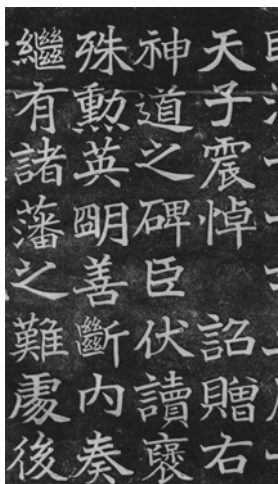 天子震悼　詔贈右
神道之碑臣伏讀褒
殊勳英朙善斷內奏
繼有諸藩之難處後